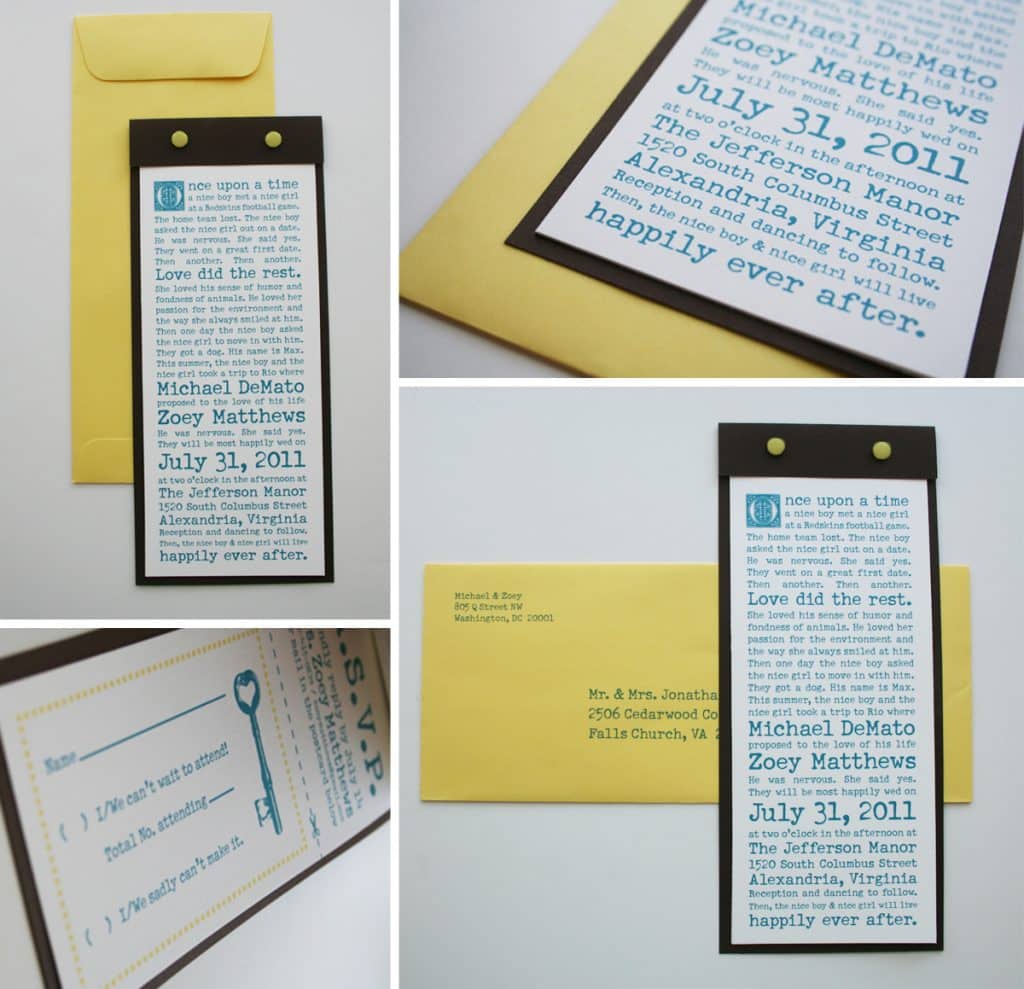 Once upon a time
a nice boy met a nice girl
at a Redskins football game.
The home team lost. The nice boy
asked the nice girl out on a date.
He was nervous. She said yes.
They went on a great first date.
Then another. Then another.
Love did the rest.
She loved his sense of humor and
fondness of animals. He loved her
passion for the environment and
the way she always smiled at him.
Then one day the nice boy asked
the nice girl to move in with him.
They got a dog. His name is Max.
This summer, the nice boy and the
nice girl took a trip to Rio where
Michael DeMato
proposed to the love of his life
Zoey Matthews
He was nervous. She said yes.
They will be most happily wed on
July 31, 2011
at two o'clock in the afternoon at
The Jefferson Manor
1520 South Columbus Street
Alexandria, Virginia
Reception and dancing to follow.
Then, the nice boy & nice girl will live
happily ever after.
girl took a trip to Rio where
Michael DeMato
proposed to the love of his life
Zoey Matthews
He was nervous. She said yes.
They will be most happily wed on
July 31, 2011
at two o'clock in the afternoon at
The Jefferson Manor
1520 South Columbus Street
Alexandria, Virginia
Reception and dancing to follow.
Then, the nice boy & nice girl will live
happily ever after.
Name
( ) I/We can't wait to attend!
Total No. attending
( ) I/We sadly can't make it.
.S.V.P.
reply by July 14
Zoey Matthews
mail in the postcard below
Michael & Zoey
805 Q Street NW
Washington, DC 20001
Mr. & Mrs. Jonatha
2506 Cedarwood Co
Falls Church, VA 2
Once upon a time
a nice boy met a nice girl
at a Redskins football game.
The home team lost. The nice boy
asked the nice girl out on a date.
He was nervous. She said yes.
They went on a great first date.
Then another. Then another.
Love did the rest.
She loved his sense of humor and
fondness of animals. He loved her
passion for the environment and
the way she always smiled at him.
Then one day the nice boy asked
the nice girl to move in with him.
They got a dog. His name is Max.
This summer, the nice boy and the
nice girl took a trip to Rio where
Michael DeMato
proposed to the love of his life
Zoey Matthews
He was nervous. She said yes.
They will be most happily wed on
July 31, 2011
at two o'clock in the afternoon at
The Jefferson Manor
1520 South Columbus Street
Alexandria, Virginia
Reception and dancing to follow.
Then, the nice boy & nice girl will live
happily ever after.